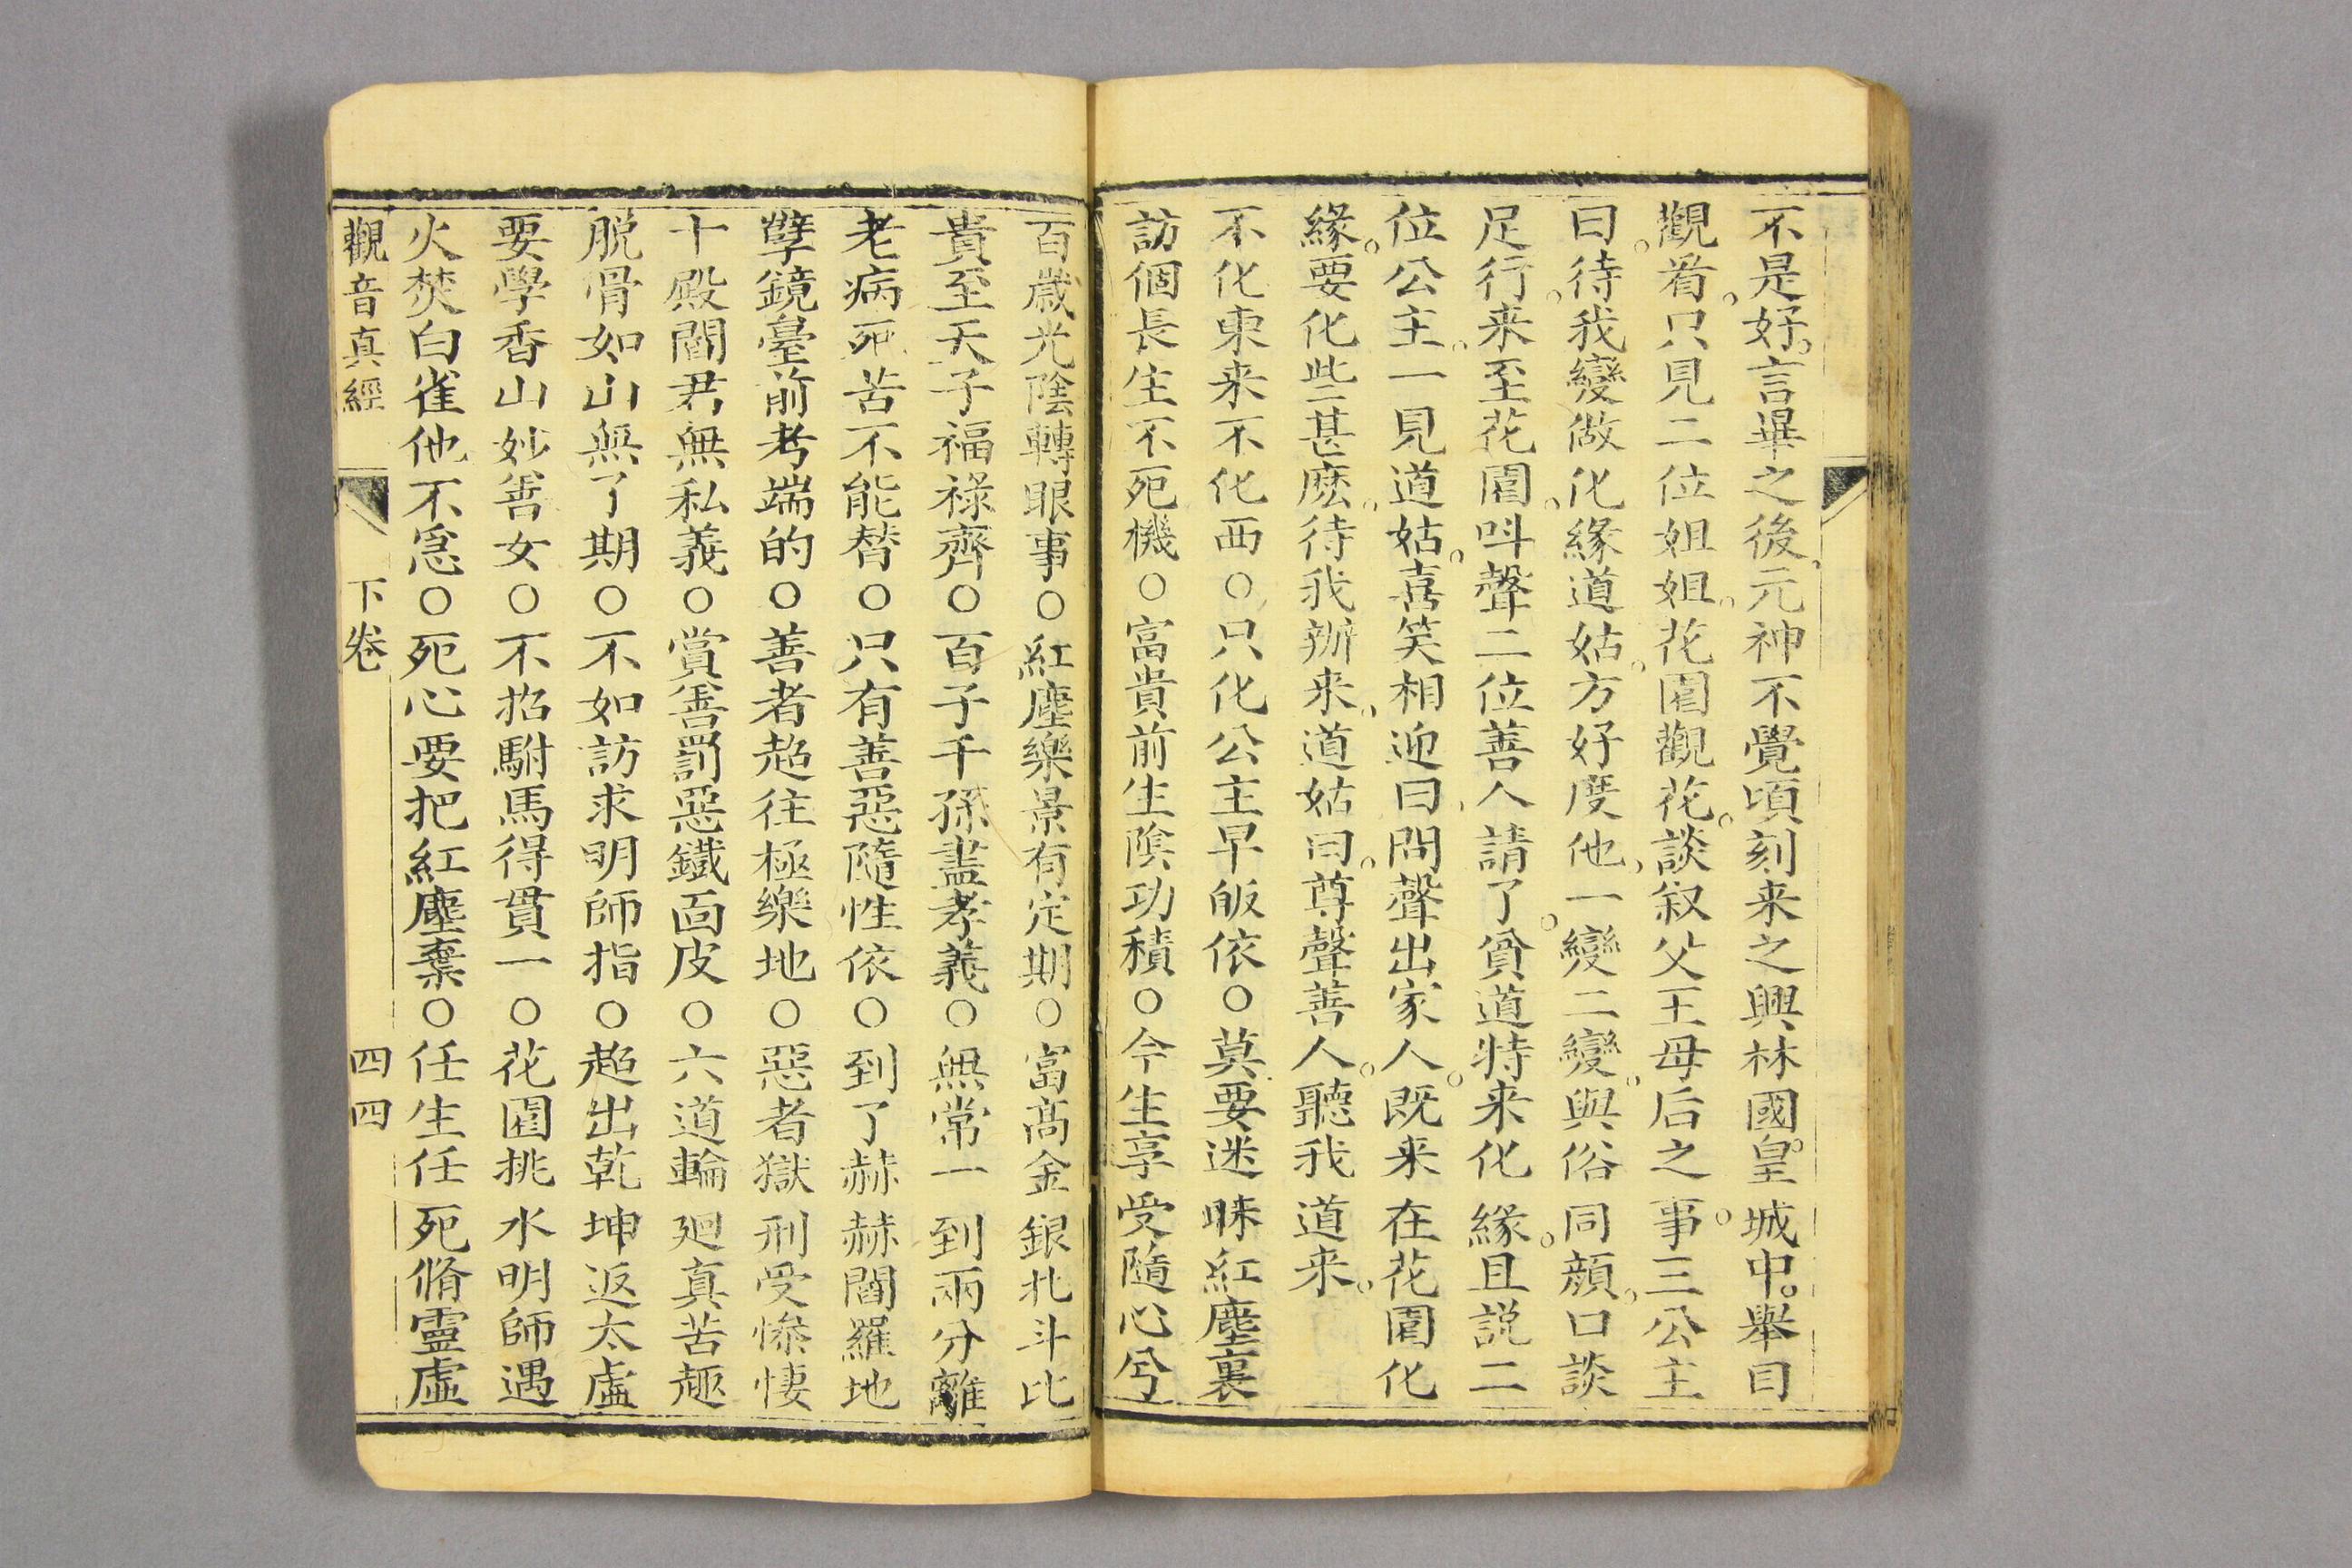 不是好。言畢之後。元神不覺頃刻来之興林國。皇城中。舉目
觀看。只見二位姐姐。花園觀花。談叙父王母后之事。三公主
曰。待我變做化緣道姑。方好度他。一變二變。與俗同顔。口談
足行。来至花園。呌聲二位善人請了。貧道特来化緣。且説二
位公主。一見道姑。喜笑相迎曰。問聲出家人。既来在花園化
緣。要化些甚麽。待我辦来。道姑曰。尊聲善人。聽我道来。
不化東来不化西○只化公主早皈依○莫要迷昧紅塵裏
訪個長生不死機○富貴前生隂功積○今生享受隨心兮
百歲光陰轉眼事○紅塵樂景有定期○富髙金銀北斗比
貴至天子福禄齊○百子千孫盡孝義○無常一到兩分離
老病死苦不能替○只有善惡隨性依○到了赫赫閻羅地
孽鏡臺前考端的○善者超往極樂地○惡者獄刑受慘悽
十殿閻君無私義○賞善罰惡鐵面皮○六道輪廻真苦趣
脱骨如山無了期○不如訪求明師指○超出乾坤返太虛
要學香山妙善女○不招駙馬得貫一○花園挑水明師遇
火焚白雀他不怠○死心要把紅塵棄○任生任死脩靈虛
觀音真經 下卷 四四